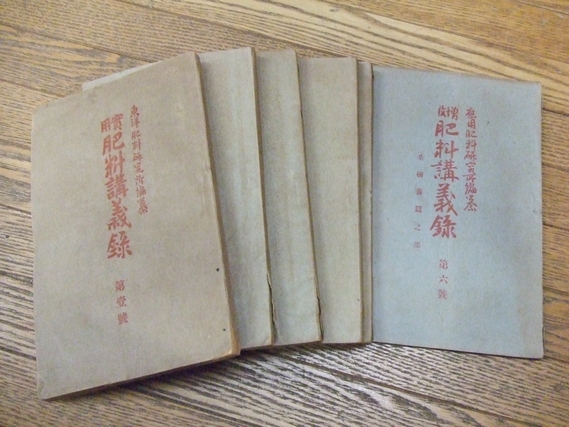 東洋肥料研究所編纂
實用
肥料講義錄
第壹號
應用肥料研究所編纂
增改
肥料講義錄
第六號